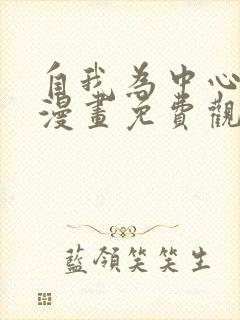 自我為中心
漫畫免費觀
藍領笑笑生